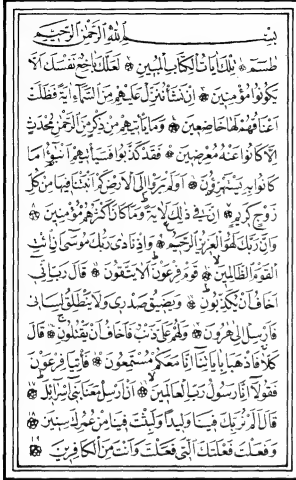 بِسْمِ اللّٰهِ الرَّحْمٰنِ الرَّحِيمِ
طٰسٓمٓ ۞ تِلْكَ اٰيَاتُ الْكِتَابِ الْمُبِينِ ۞ لَعَلَّكَ بَاخِعٌ نَفْسَكَ اَلَّا
يَكُونُوا مُؤْمِنِينَ ۞ اِنْ نَشَأْ نُنَزِّلْ عَلَيْهِمْ مِنَ السَّمَاءِ اٰيَةً فَظَلَّتْ
اَعْنَاقُهُمْ لَهَا خَاضِعِينَ ۞ وَمَا يَأْتِيهِمْ مِنْ ذِكْرٍ مِنَ الرَّحْمٰنِ مُحْدَثٍ
اِلَّا كَانُوا عَنْهُ مُعْرِضِينَ ۞ فَقَدْ كَذَّبُوا فَسَيَأْتِيهِمْ اَنْبٰٓؤُا مَا
كَانُوا بِهِ يَسْتَهْزِؤُنَ ۞ اَوَلَمْ يَرَوْا اِلَى الْاَرْضِ كَمْ اَنْبَتْنَا فِيهَا مِنْ كُلِّ
زَوْجٍ كَرِيمٍ ۞ اِنَّ فِي ذٰلِكَ لَاٰيَةً وَمَا كَانَ اَكْثَرُهُمْ مُؤْمِنِينَ ۸
وَاِنَّ رَبَّكَ لَهُوَ الْعَزِيزُ الرَّحِيمُ ۞ وَاِذْ نَادٰى رَبُّكَ مُوسٰى اَنِ ائْتِ
الْقَوْمَ الظَّالِمِينَ ۞ قَوْمَ فِرْعَوْنَ اَلَا يَتَّقُونَ ۞ قَالَ رَبِّ اِنِّي
اَخَافُ اَنْ يُكَذِّبُونِ ۞ وَيَضِيقُ صَدْرِي وَلَا يَنْطَلِقُ لِسَانِي
فَاَرْسِلْ اِلٰى هٰرُونَ ۞ وَلَهُمْ عَلَيَّ ذَنْبٌ فَاَخَافُ اَنْ يَقْتُلُونِ ۞ قَالَ
كَلَّا فَاذْهَبَا بِاٰيَاتِنَا اِنَّا مَعَكُمْ مُسْتَمِعُونَ ۞ فَأْتِيَا فِرْعَوْنَ
فَقُولَا اِنَّا رَسُولُ رَبِّ الْعَالَمِينَ ۞ اَنْ اَرْسِلْ مَعَنَا بَنِي اِسْرَائِلَ ۱۷
قَالَ اَلَمْ نُرَبِّكَ فِينَا وَلِيدًا وَلَبِثْتَ فِينَا مِنْ عُمُرِكَ سِنِينَ ۱۸
وَفَعَلْتَ فَعْلَتَكَ الَّتِي فَعَلْتَ وَاَنْتَ مِنَ الْكَافِرِينَ ۱۹